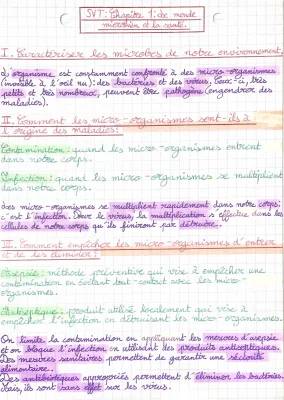 SVT: Chapitre 1: Le monde
microbien et la santé.
I. Caractériser les microbes de notre environnement:
L'organisme est constamment confronté à des micro-organismes
(invisible à l'oeil nu): des bactéries et des virus. Ceux-ci, très
petits et très nombreux, peuvent être pathogènes (engendrer des
maladies).
II. Comment les micro-organismes sont-ils à
l'origine des maladies:
Contamination: quand les micro-organismes entrent
dans notre corps.
Infection: quand les micro-organismes se multiplient
dans notre corps.
Les micro-organismes se multiplient rapidement dans notre corps:
c'est l'infection. Pour le virus, la multiplication s'effectue dans les
cellules de notre corps qu'ils finiront par détruire.
III. Comment empêcher les micro-organismes d'entrer
et de les éliminer:
Asepsie: méthode préventive qui vise à empêcher une
contamination en évitant tout contact avec les micro-
organismes.
Antiseptique: produit utilisé localement qui vise à
empêcher l'infection en détruisant les micro-organismes.
On limite la contamination en appliquant les mesures d'asepsie
et on bloque l'infection en utilisant des produits antiseptiques.
Des mesures sanitaires permettent de garantir une sécurité
alimentaire.
Des antibiotiques appropriés permettent d'éliminer les bactéries.
Mais, ils sont sans effet sur les virus.